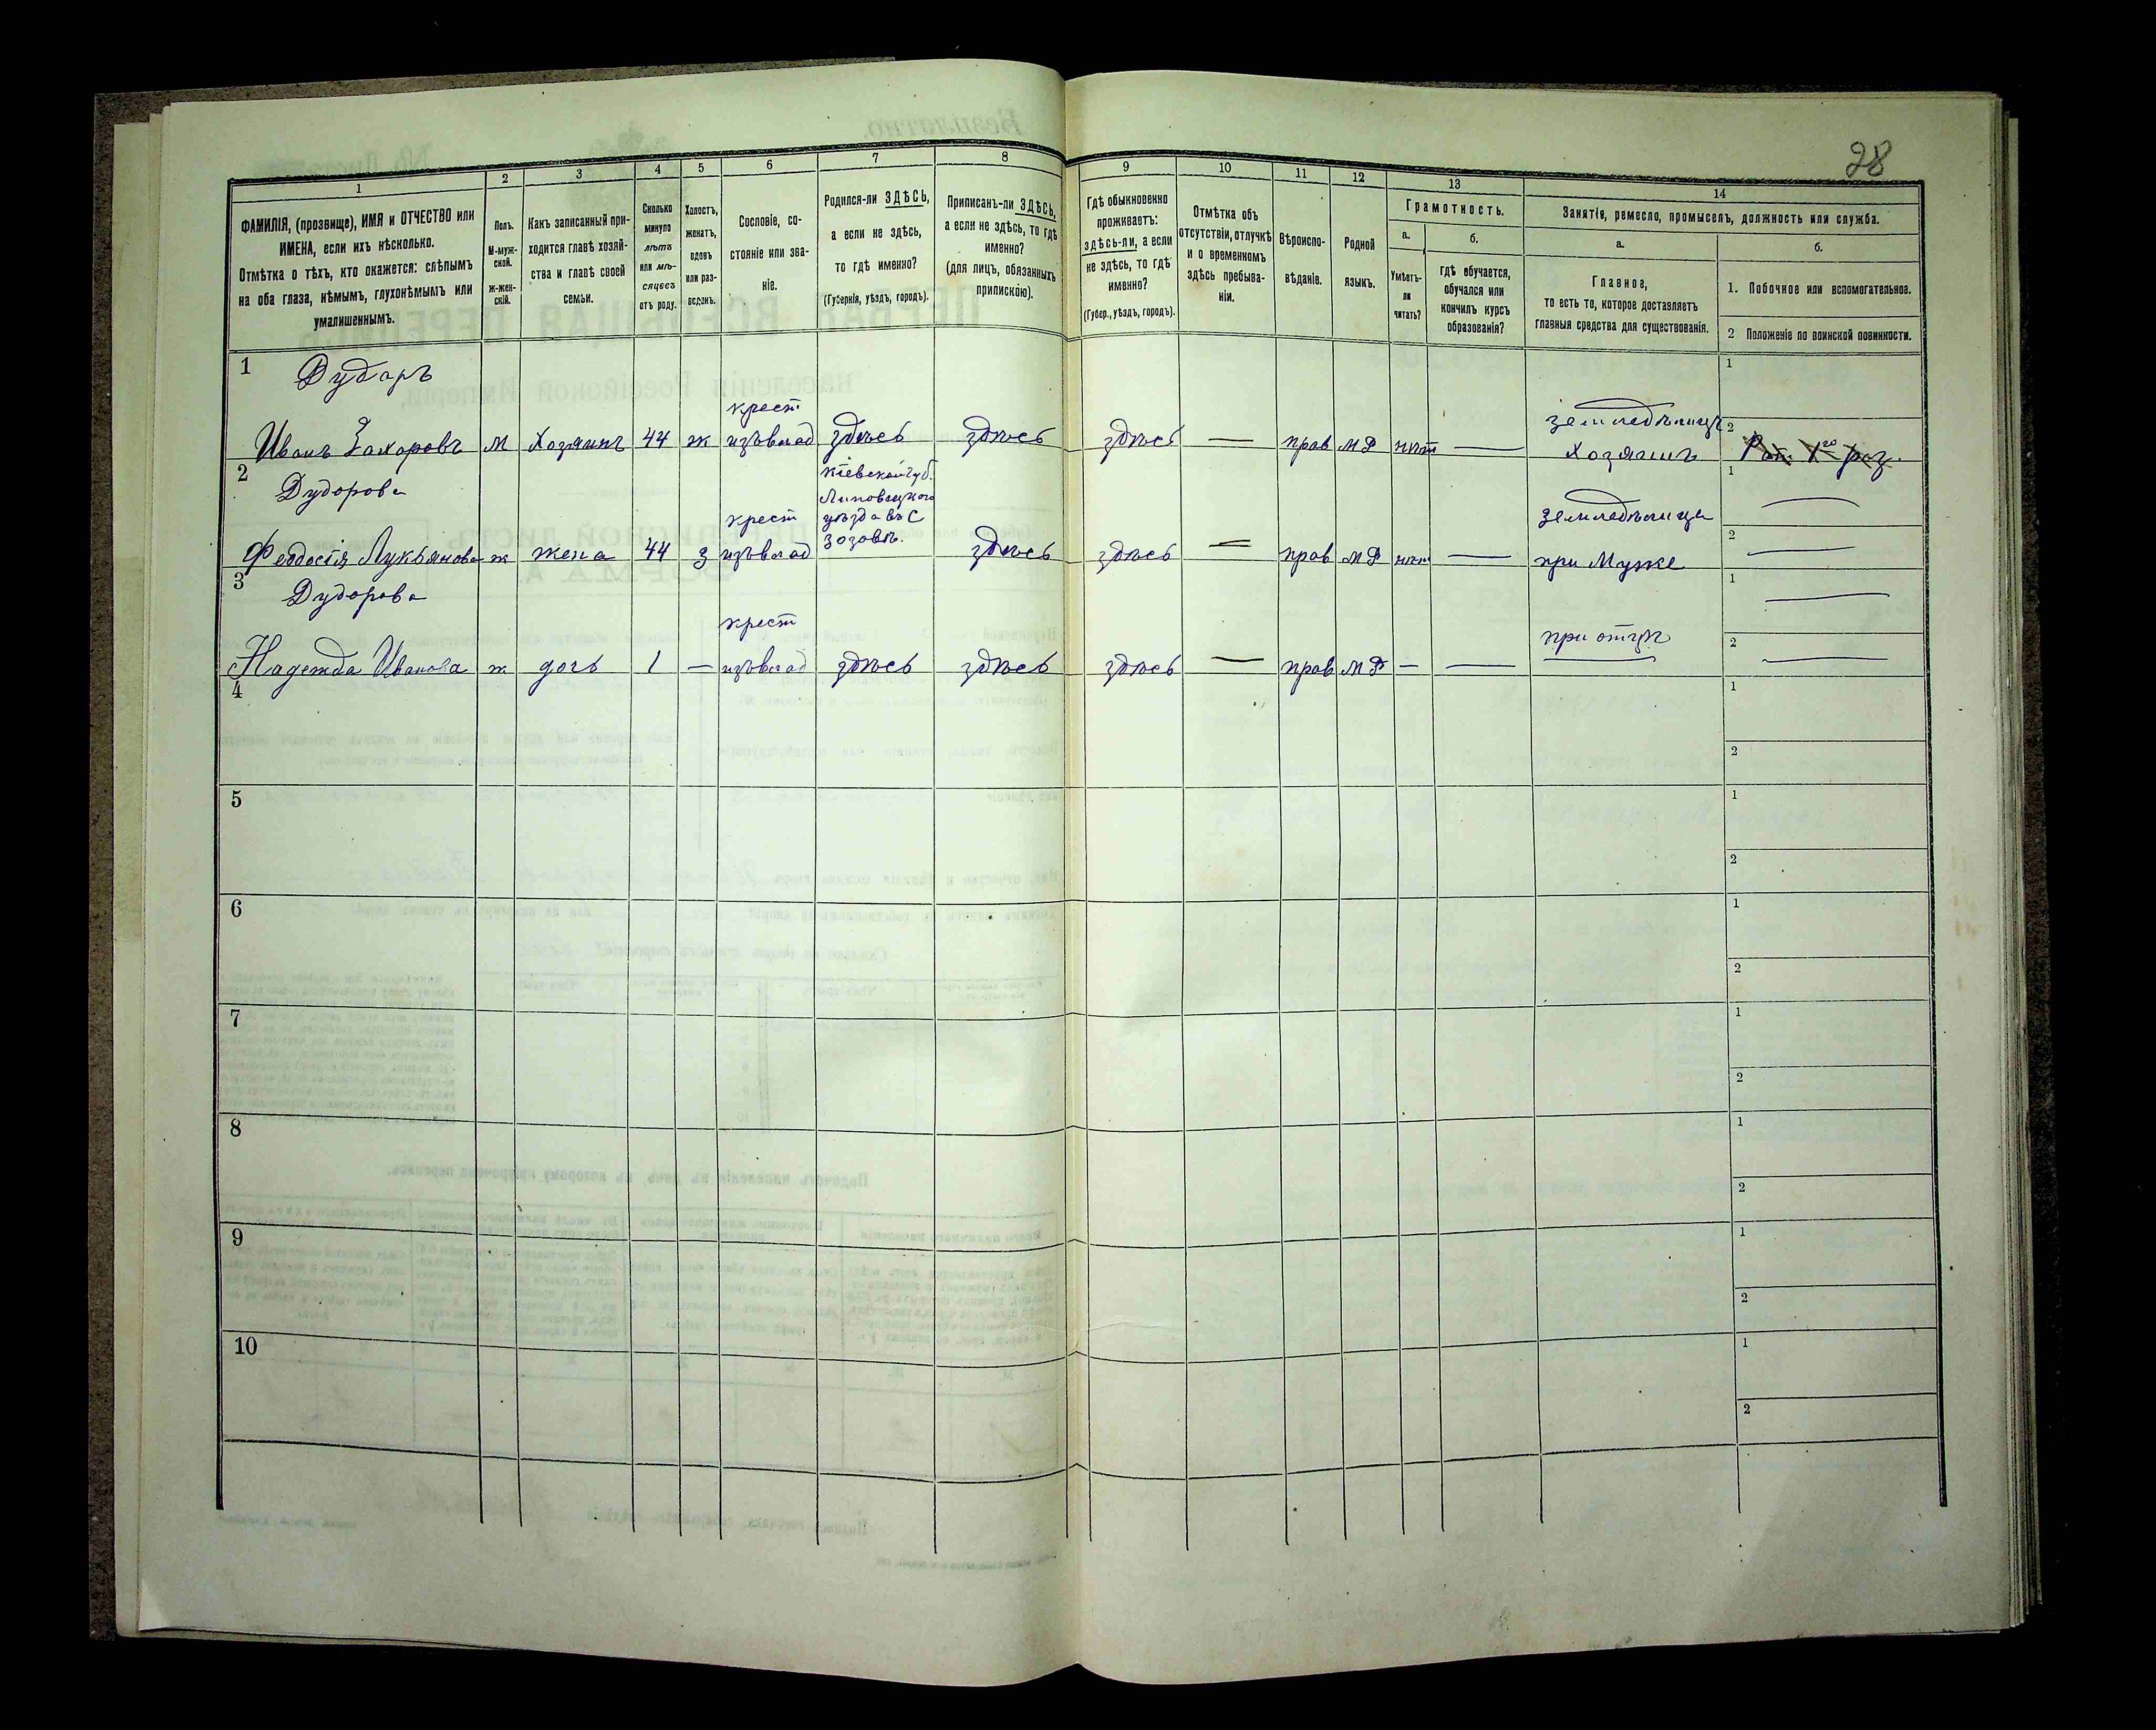 28
1
2
3
4
5
6
7
8
9
10
11
12
13
14
ФАМИЛІЯ, (прозвище), ИМЯ и ОТЧЕСТВО или
ИМЕНА, если ихъ нѣсколько.
Отмѣтка о тѣхъ, кто окажется: слѣпымъ
на оба глаза, нѣмымъ, глухонѣмымъ или
умалишеннымъ.
Полъ.
М-муж-
ской.
ж-жен-
скій.
Какъ записанный при-
ходится главѣ хозяй-
ства и главѣ своей
семьи.
Сколько
минуло
лѣтъ
или мѣ-
сяцевъ
отъ роду.
Холостъ,
женатъ,
вдовъ
или раз-
веденъ.
Сословіе, со-
стояніе или зва-
ніе.
Родился-ли ЗДѢСЬ,
а если не здѣсь,
то гдѣ именно?
(Губернія, уѣздъ, городъ).
Приписанъ-ли ЗДѢСЬ,
а если не здѣсь, то гдѣ
именно?
(для лицъ, обязанныхъ
припискою).
Гдѣ обыкновенно
проживаетъ:
здѣсь-ли, а если
не здѣсь, то гдѣ
именно?
(Губер., уѣздъ, городъ).
Отмѣтка объ
отсутствіи, отлучкѣ
и о временномъ
здѣсь пребыва-
ніи.
Вѣроиспо-
вѣданіе.
Родной
языкъ.
Грамотность.
а.
Умѣетъ-
ли
читать?
б.
гдѣ обучается,
обучался или
кончилъ курсъ
образованія?
Занятіе, ремесло, промыселъ, должность или служба.
а.
Главное,
то есть то, которое доставляетъ
главныя средства для существованія.
б.
1. Побочное или вспомогательное.
2 Положеніе по воинской повинности.
1 Дударъ
Иванъ Захаровъ м Хозяинъ 44 ж крест здѣсь здѣсь здѣсь — прав МР нѣт — земледѣлецъ
Хозяинъ
1
2
2 Дударова
Феодосія Лукьянова ж жена 44 з крест
Кіевской губ.
Липовецкого
уѣзда въ с
Зозовѣ.
здѣсь здѣсь — прав МР нѣт — земледѣлица
при Муже
1 —
2 —
3 Дударова
Надежда Иванова ж дочь 1 — крест здѣсь здѣсь здѣсь — прав МР — — при отцѣ
1 —
2 —
4
1
2
5
1
2
6
1
2
7
1
2
8
1
2
9
1
2
10
1
2